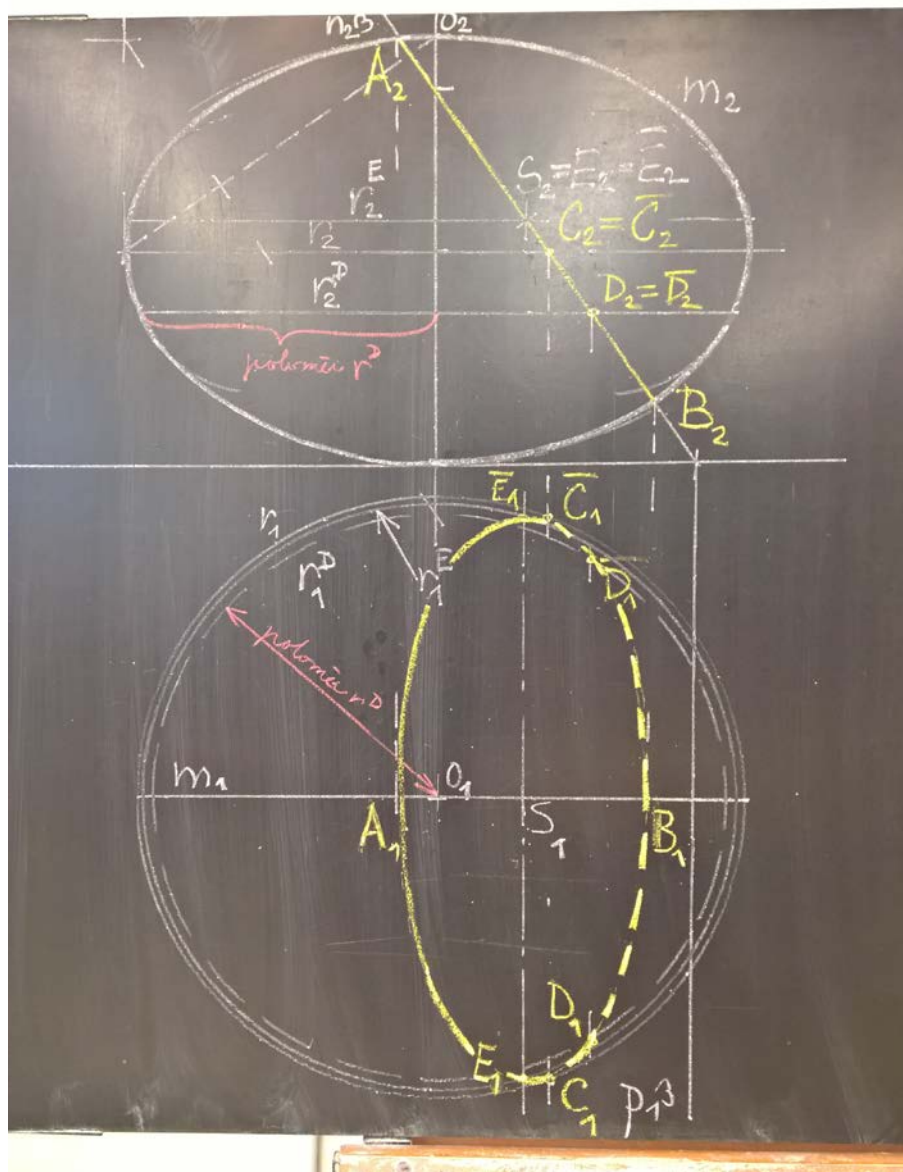 n₂ᵝ O₂
A₂ m₂
S₂=E₂=E̅₂
r₂ᴱ
C₂=C̅₂
r₂
D₂=D̅₂
r₂ᴰ
poloměr rᴰ
B₂
E̅₁ C̅₁
r₁
r₁ᴰ r₁ᴱ D̅₁
poloměr rᴰ
m₁ O₁
A₁ S₁ B₁
D₁
E₁ C₁ p₁ᵝ